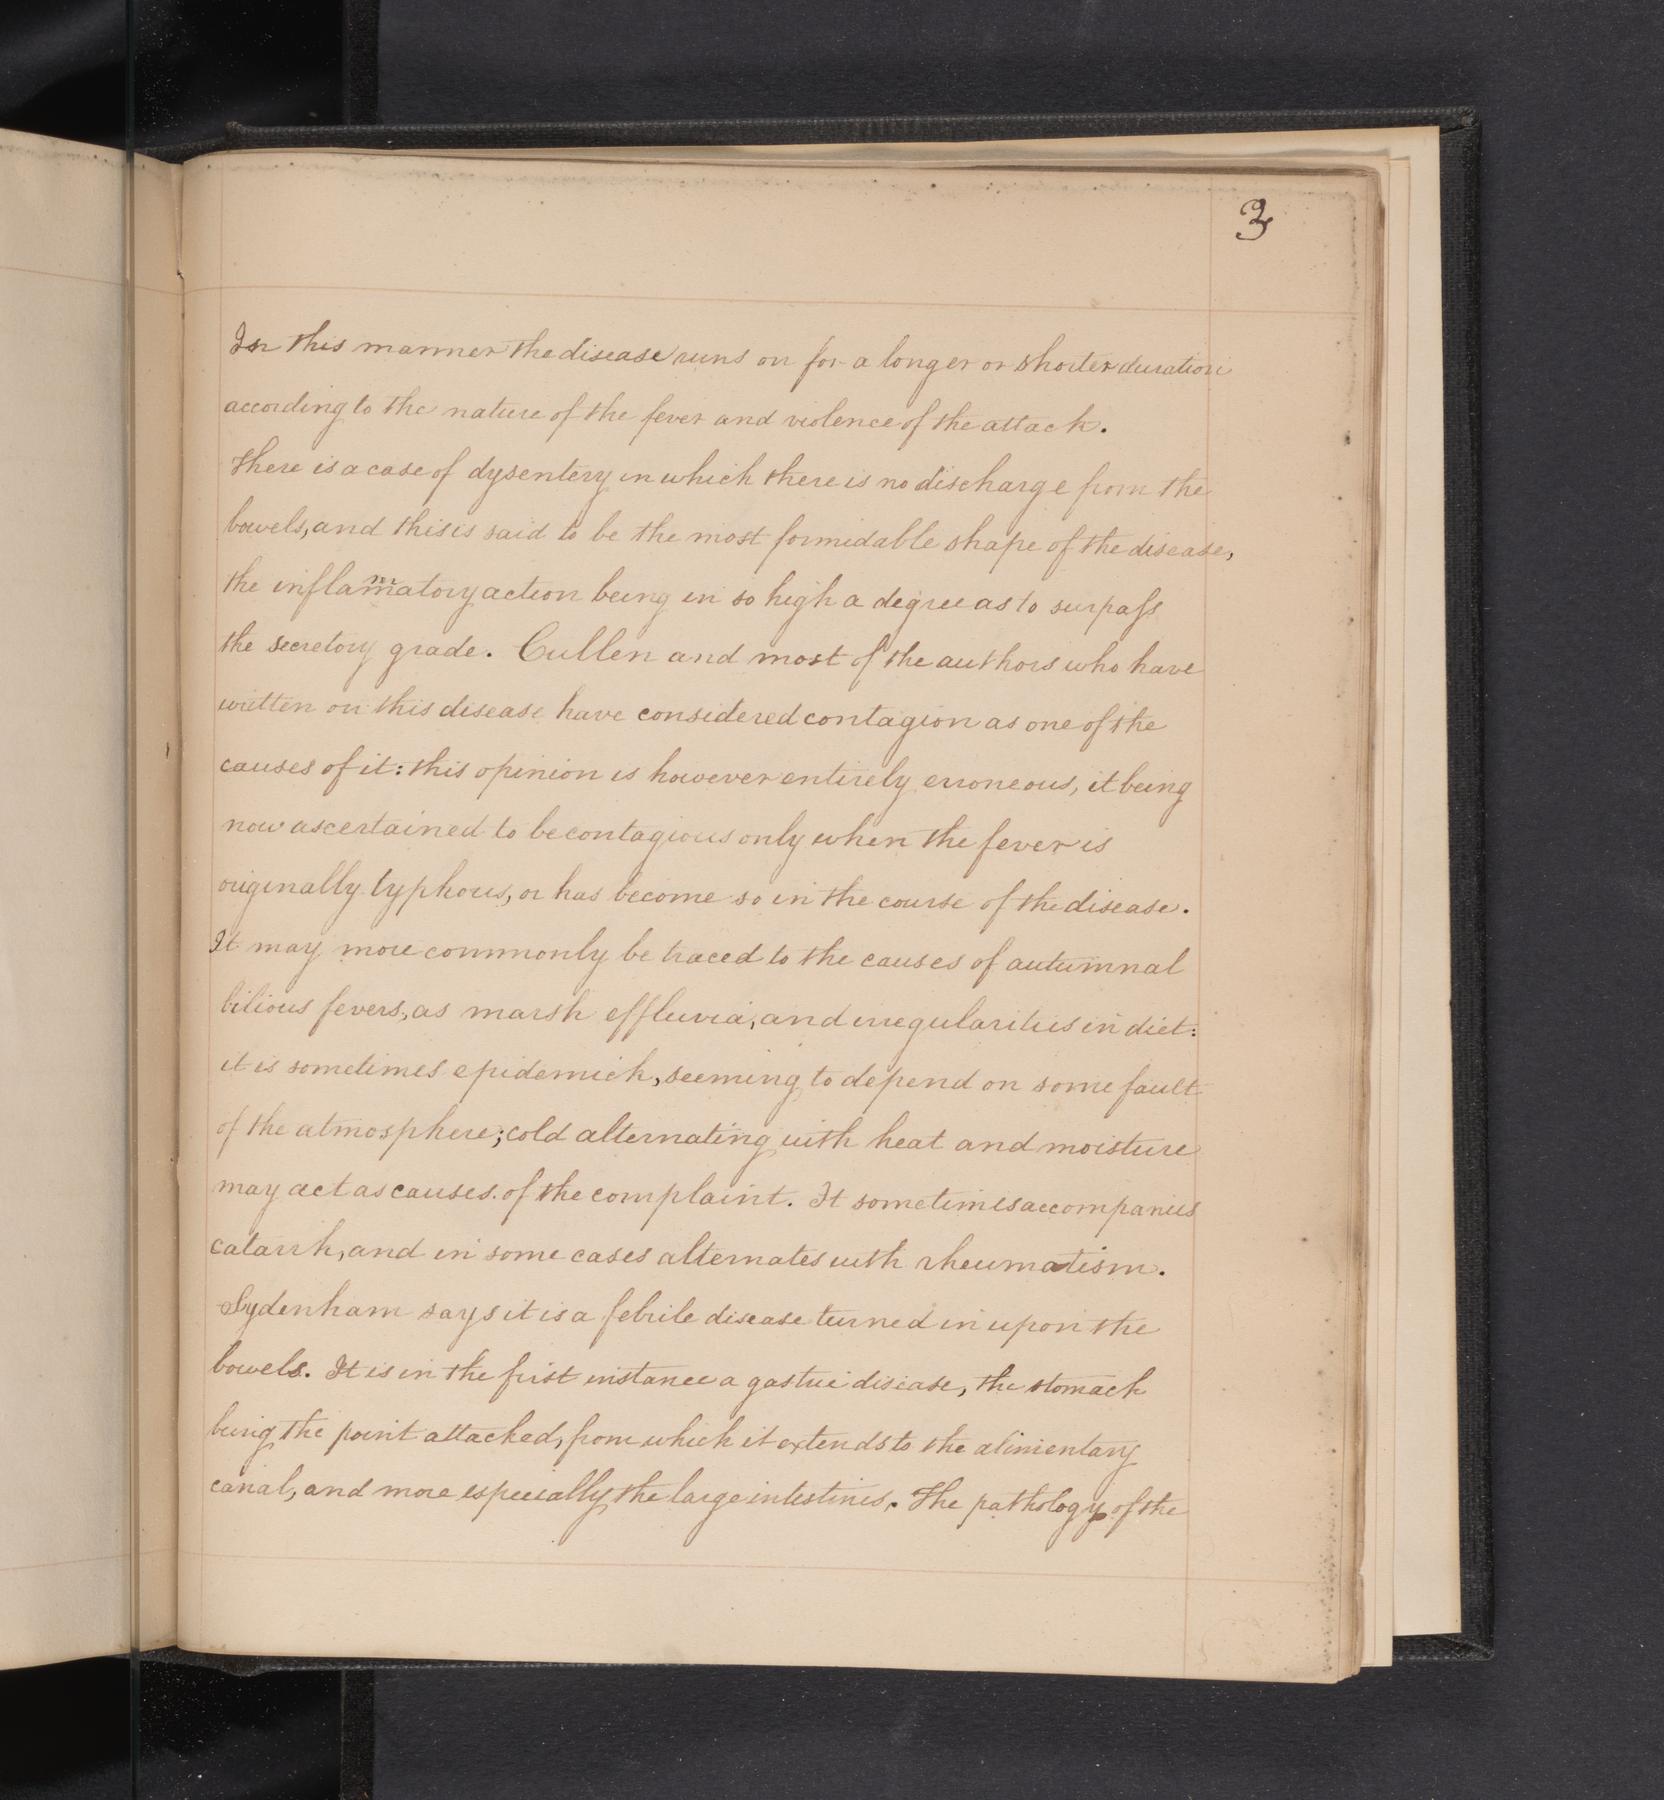 3
In this manner the disease runs on for a longer or shorter duration
according to the nature of the fever and violence of the attack.
There is a case of dysentery in which there is no discharge from the
bowels, and this is said to be the most formidable shape of the disease,
the inflammatory action being in so high a degree as to surpass
the secretory grade. Cullen and most of the authors who have
written on this disease have considered contagion as one of the
causes of it: this opinion is however entirely erroneous, it being
now ascertained to be contagious only when the fever is
originally typhous, or has become so in the course of the disease.
It may more commonly be traced to the causes of autumnal
bilious fevers, as marsh effluvia, and irregularities in diet:
it is sometimes epidemick, seeming to depend on some fault
of the atmosphere; cold alternating with heat and moisture
may act as causes of the complaint. It sometimes accompanies
catarrh, and in some cases alternates with rheumatism.
Sydenham says it is a febrile disease turned in upon the
bowels. It is in the first instance a gastric disease, the stomach
being the point attacked, from which it extends to the alimentary
canal, and more especially the large intestines. The pathology of the